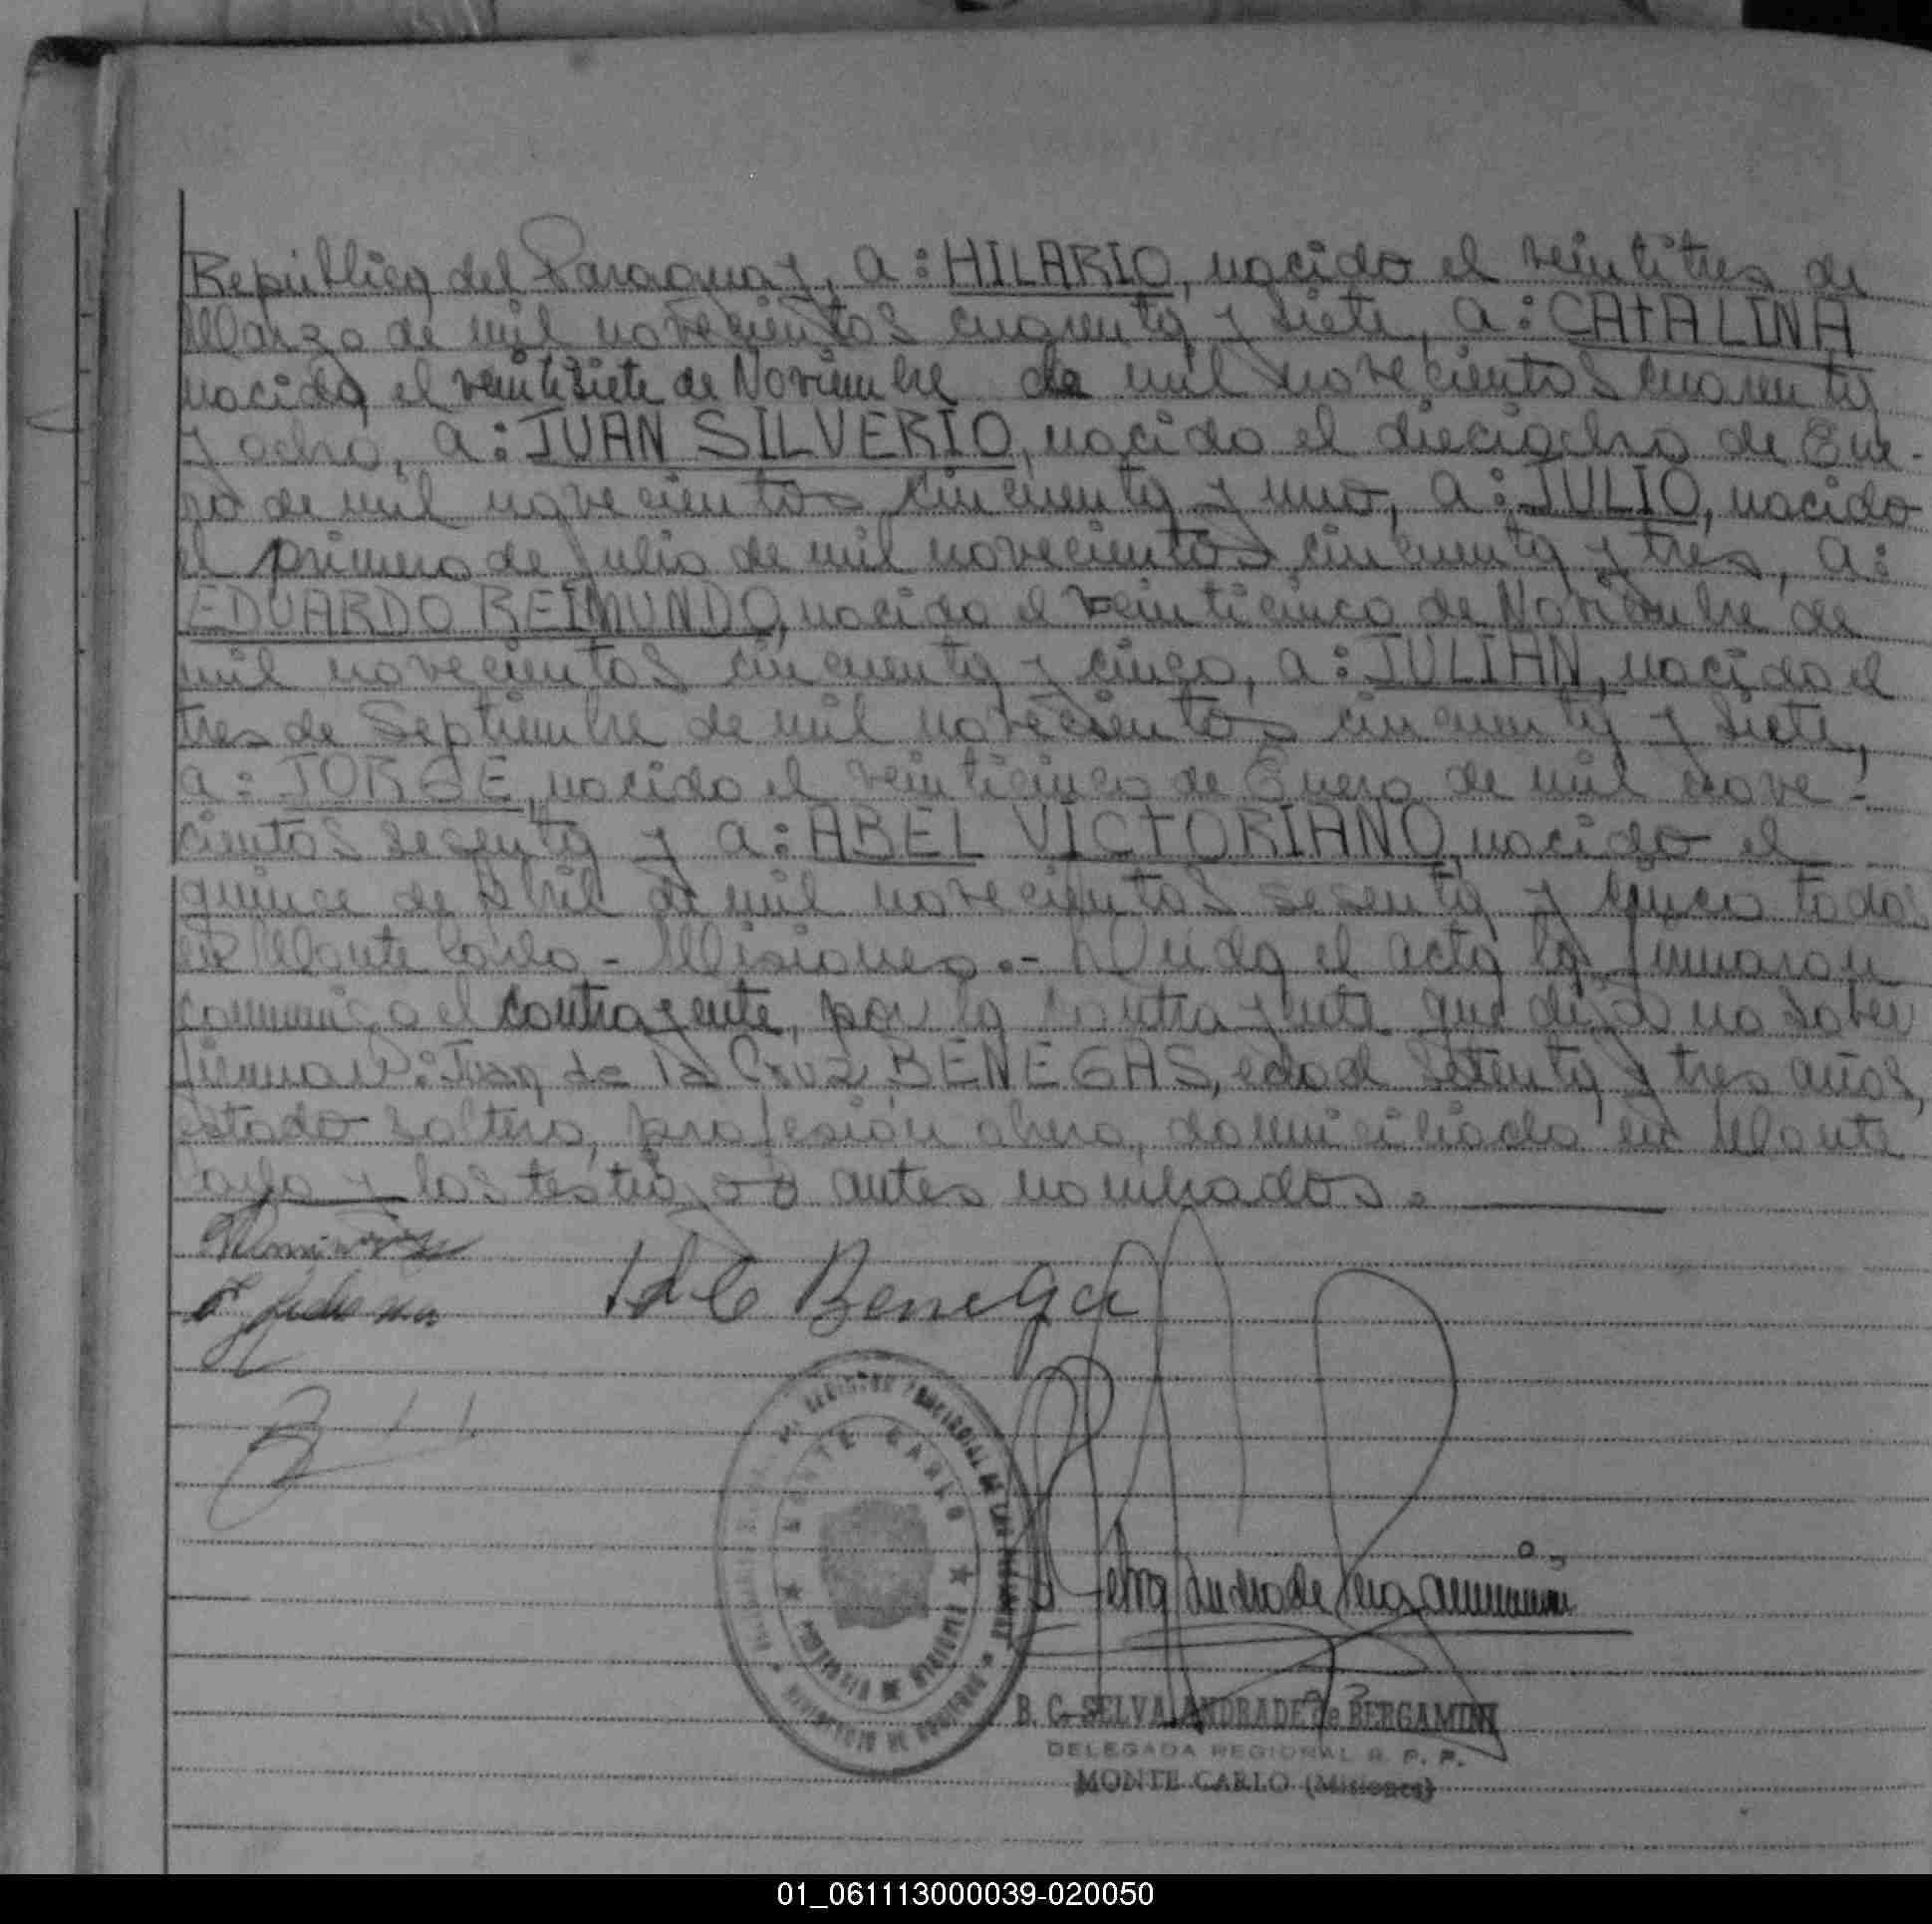 República del Paraguay, a: HILARIO, nacido el veintitres de
Marzo de mil novecientos cuarenta y siete, a: CATALINA
nacida el veintisiete de Noviembre de mil novecientos cuarenta
y ocho, a: JUAN SILVERIO, nacido el dieciocho de Ene-
ro de mil novecientos cincuenta y uno, a: JULIO, nacido
el primero de Julio de mil novecientos cincuenta y tres, a:
EDUARDO REIMUNDO, nacido el veinticinco de Noviembre de
mil novecientos cincuenta y cinco, a: JULIAN, nacido el
tres de Septiembre de mil novecientos cincuenta y siete,
a: JORGE, nacido el veinticinco de Enero de mil nove-
cientos sesenta y a: ABEL VICTORIANO, nacido el
quince de Abril de mil novecientos sesenta y cinco todos
en Monte Carlo - Misiones.- Leida el acta la firmaron
conmigo el contrayente, por la contrayente que dijo no saber
firmar: Juan de la Cruz BENEGAS, edad setenta y tres años,
estado soltero, profesión obrero, domiciliado en Monte
Carlo y los testigos antes nombrados.
Benega
MONTE CARLO
PROVINCIA DE MISIONES
MINISTERIO DE GOBIERNO
B. C. SELVA ANDRADE de BERGAMINI
DELEGADA REGIONAL R. P. P.
MONTE CARLO (Misiones)
01_061113000039-020050